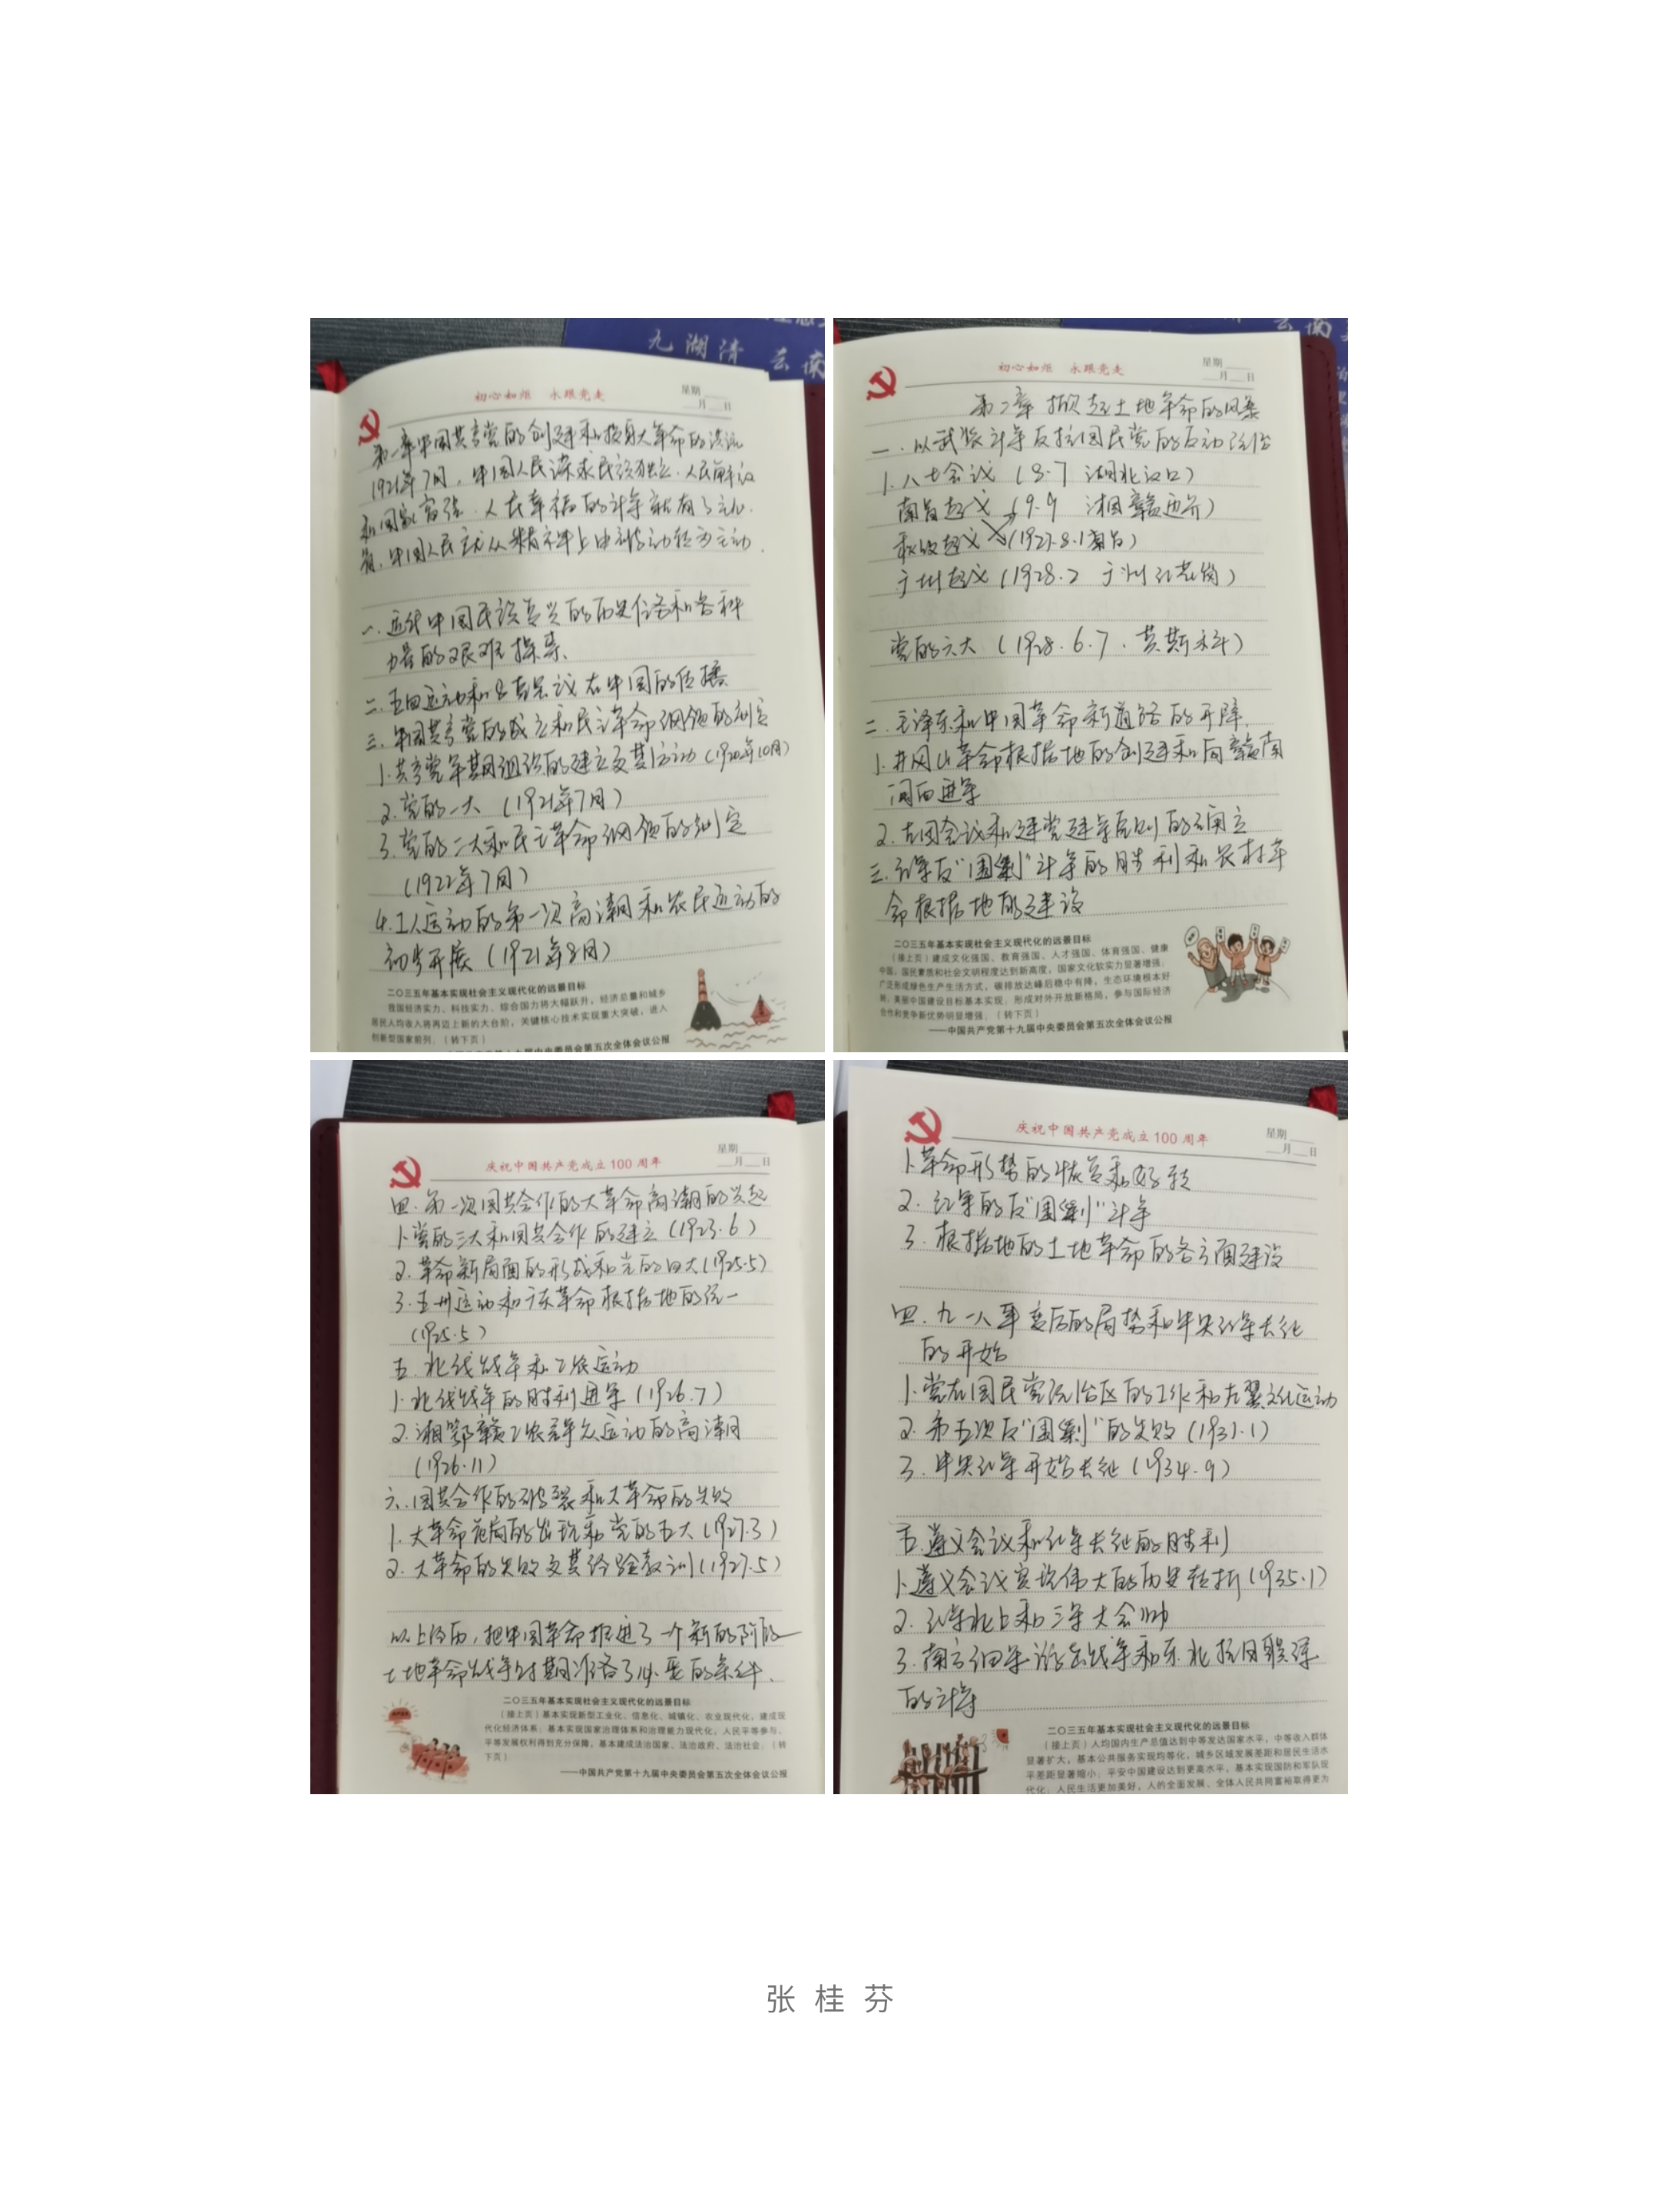 九湖清 云南
初心如炬 永跟党走
星期
月 日
第一章中国共产党的创建和投身大革命的洪流
1921年7月,中国人民谋求民族独立、人民解放
和国家富强、人民幸福的斗争就有了主心
骨,中国人民就从精神上由被动转为主动.
一.近代中国民族复兴的历史任务和各种
力量的艰难探索、
二.五四运动和马克思主义在中国的传播
三.中国共产党的成立和民主革命纲领的制定
1.共产党早期组织的建立及其活动(1920年10月)
2.党的一大 (1921年7月)
3.党的二大和民主革命纲领的制定
(1922年7月)
4.工人运动的第一次高潮和农民运动的
初步开展(1921年8月)
二〇三五年基本实现社会主义现代化的远景目标
我国经济实力、科技实力、综合国力将大幅跃升,经济总量和城乡
居民人均收入将再迈上新的大台阶,关键核心技术实现重大突破,进入
创新型国家前列。(转下页)
中央委员会第五次全体会议公报
云南
初心如炬 永跟党走
星期
月 日
第二章 掀起土地革命的风暴
一.以武装斗争反抗国民党的反动统治
1.八七会议 (8·7 湖北汉口)
南昌起义 (9.9 湘赣边界)
秋收起义 (1927.8.1南昌)
广州起义(1928.2 广州红花岗)
党的六大 (1928.6.7.莫斯科)
二.毛泽东和中国革命新道路的开辟.
1.井冈山革命根据地的创建和向赣南
闽西进军
2.古田会议和建党建军原则的确立
三.红军反“围剿”斗争的胜利和农村革
命根据地的建设
二〇三五年基本实现社会主义现代化的远景目标
(接上页)建成文化强国、教育强国、人才强国、体育强国、健康
中国,国民素质和社会文明程度达到新高度,国家文化软实力显著增强;
广泛形成绿色生产生活方式,碳排放达峰后稳中有降,生态环境根本好
转,美丽中国建设目标基本实现;形成对外开放新格局,参与国际经济
合作和竞争新优势明显增强;(转下页)
——中国共产党第十九届中央委员会第五次全体会议公报
庆祝中国共产党成立100周年
星期
月 日
四.第一次国共合作的大革命高潮的兴起
1.党的三大和国共合作的建立(1923.6)
2.革命新局面的形成和党的四大(1925.5)
3.五卅运动和广东革命根据地的统一
(1925.5)
五.北伐战争和工农运动
1.北伐战争的胜利进军(1926.7)
2.湘鄂赣工农群众运动的高潮
(1926.11)
六.国共合作的破裂和大革命的失败
1.大革命危局的出现和党的五大(1927.3)
2.大革命的失败及其经验教训(1927.5)
以上经历,把中国革命推进了一个新的阶段—
土地革命战争时期准备了必要的条件.
二〇三五年基本实现社会主义现代化的远景目标
(接上页)基本实现新型工业化、信息化、城镇化、农业现代化,建成现
代化经济体系;基本实现国家治理体系和治理能力现代化,人民平等参与、
平等发展权利得到充分保障,基本建成法治国家、法治政府、法治社会;(转
下页)
——中国共产党第十九届中央委员会第五次全体会议公报
庆祝中国共产党成立100周年
星期
月 日
1.革命形势的恢复和好转
2.红军的反“围剿”斗争
3.根据地的土地革命的各方面建设
四.九一八事变后的局势和中央红军长征
的开始
1.党在国民党统治区的工作和左翼文化运动
2.第五次反“围剿”的失败(1931.1)
3.中央红军开始长征(1934.9)
五.遵义会议和红军长征的胜利
1.遵义会议实现伟大的历史转折(1935.1)
2.红军北上和三军大会师
3.南方红军游击战争和东北抗日联军
的斗争
二〇三五年基本实现社会主义现代化的远景目标
(接上页)人均国内生产总值达到中等发达国家水平,中等收入群体
显著扩大,基本公共服务实现均等化,城乡区域发展差距和居民生活水
平差距显著缩小;平安中国建设达到更高水平,基本实现国防和军队现
代化;人民生活更加美好,人的全面发展、全体人民共同富裕取得更为
张桂芬